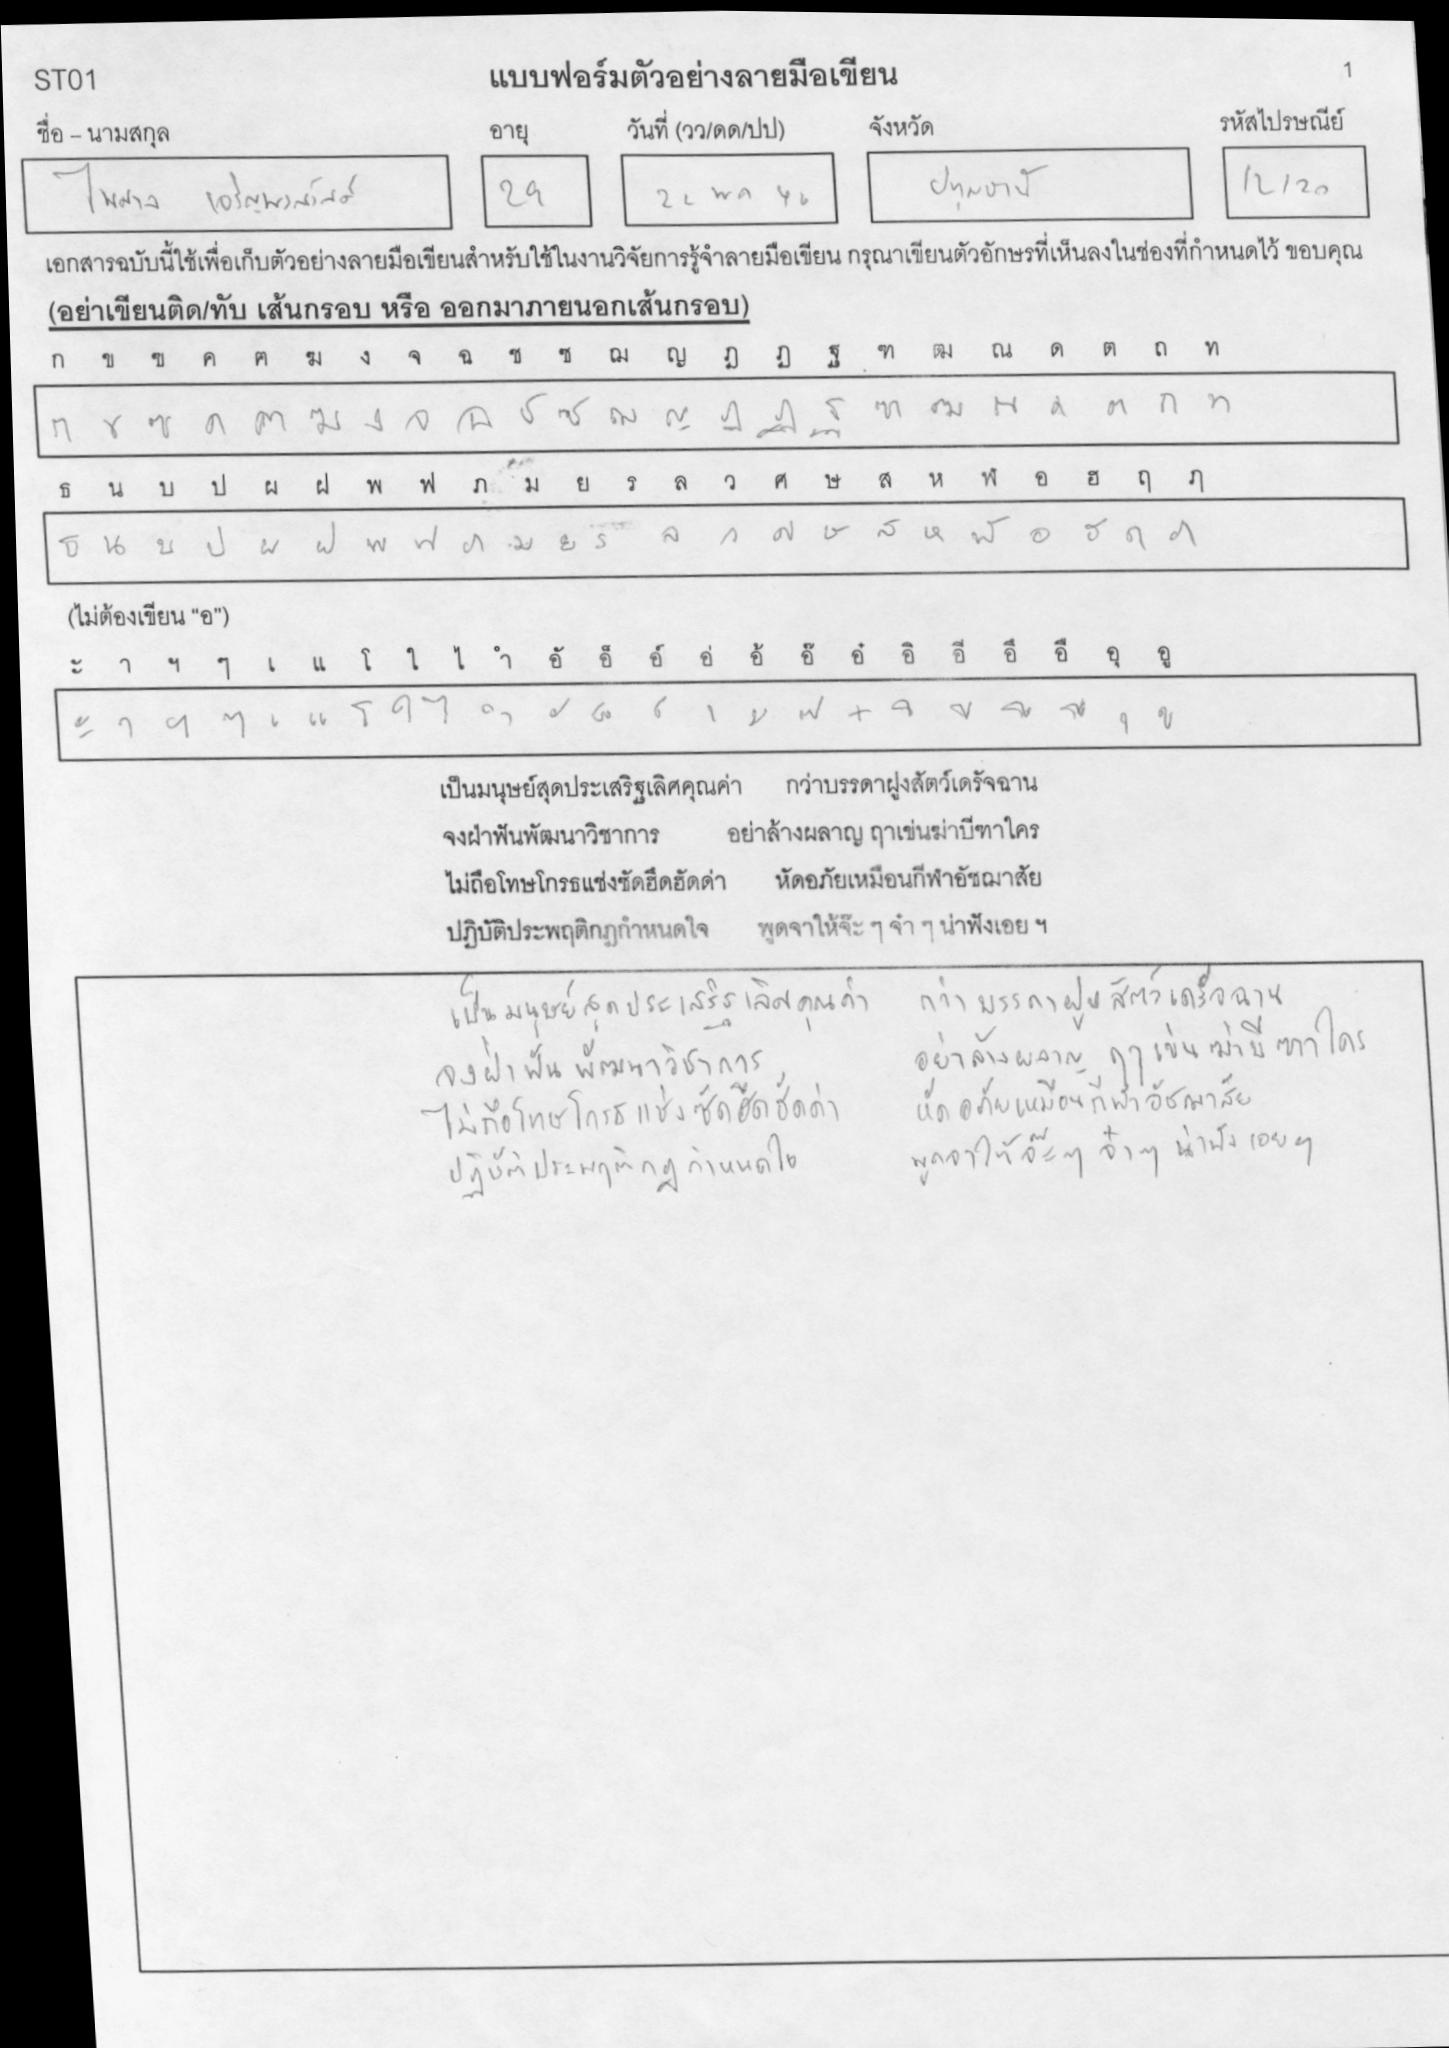 ST01 แบบฟอร์มตัวอย่างลายมือเขียน 1
ชื่อ – นามสกุล อายุ วันที่ (วว/ดด/ปป) จังหวัด รหัสไปรษณีย์
ไพศาล 29 พค ปทุมธานี 12120
เอกสารฉบับนี้ใช้เพื่อเก็บตัวอย่างลายมือเขียนสำหรับใช้ในงานวิจัยการรู้จำลายมือเขียน กรุณาเขียนตัวอักษรที่เห็นลงในช่องที่กำหนดไว้ ขอบคุณ
(อย่าเขียนติด/ทับ เส้นกรอบ หรือ ออกมาภายนอกเส้นกรอบ)
ก ข ฃ ค ฅ ฆ ง จ ฉ ช ซ ฌ ญ ฎ ฏ ฐ ฑ ฒ ณ ด ต ถ ท
ก ข ฃ ค ฅ ฆ ง จ ฉ ช ซ ฌ ญ ฎ ฏ ฐ ฑ ฒ ณ ด ต ถ ท
ธ น บ ป ผ ฝ พ ฟ ภ ม ย ร ล ว ศ ษ ส ห ฬ อ ฮ ฤ ฦ
ธ น บ ป ผ ฝ พ ฟ ภ ม ย ร ล ว ศ ษ ส ห ฬ อ ฮ ฤ ฦ
(ไม่ต้องเขียน "อ")
ะ า ฯ ๆ เ แ โ ใ ไ ำ อั อ็ อ์ อ่ อ้ อ๊ อ๋ อิ อี อึ อื อุ อู
ะ า ฯ ๆ เ แ โ ใ ไ ำ ั ็ ์ ่ ้ ๊ ๋ ิ ี ึ ื ุ ู
เป็นมนุษย์สุดประเสริฐเลิศคุณค่า กว่าบรรดาฝูงสัตว์เดรัจฉาน
จงฝ่าฟันพัฒนาวิชาการ อย่าล้างผลาญ ฤาเข่นฆ่าบีฑาใคร
ไม่ถือโทษโกรธแช่งซัดฮึดฮัดด่า หัดอภัยเหมือนกีฬาอัชฌาสัย
ปฏิบัติประพฤติกฎกำหนดใจ พูดจาให้จ๊ะ ๆ จ๋า ๆ น่าฟังเอย ฯ
เป็นมนุษย์สุดประเสริฐเลิศคุณค่า กว่าบรรดาฝูงสัตว์เดรัจฉาน
จงฝ่าฟันพัฒนาวิชาการ อย่าล้างผลาญ ฤาเข่นฆ่าบีฑาใคร
ไม่ถือโทษโกรธแช่งซัดฮึดฮัดด่า หัดอภัยเหมือนกีฬาอัชฌาสัย
ปฏิบัติประพฤติกฎกำหนดใจ พูดจาให้จ๊ะๆ จ๋าๆ น่าฟังเอยฯ